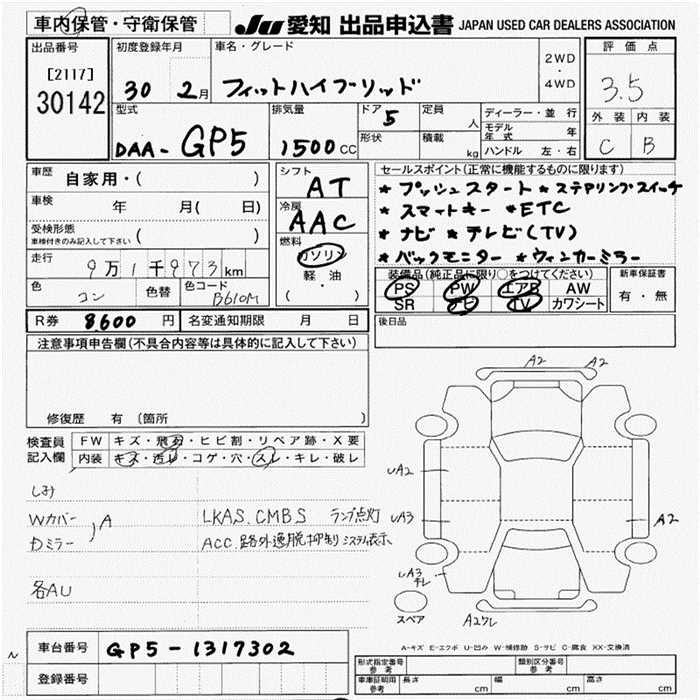 車内保管・守衛保管
JU 愛知 出品申込書 JAPAN USED CAR DEALERS ASSOCIATION
出品番号 初度登録年月 車名・グレード 評価点
[2117]
30142
30 2月 フィットハイブリッド 2WD ・ 4WD 3.5
外装 内装
C B
型式 DAA- GP5 排気量 1500 CC ドア 5 定員 人 ディーラー・並行
形状 積載 kg モデル年式 年
ハンドル 左・右
車歴 自家用・( )
車検 年 月( 日)
受検形態
車検付きのみ記入して下さい ( )
走行 9万1千973km
色 コン 色替 色コード B610M
シフト AT
冷房 AAC
燃料 ガソリン
軽・油
( ・ )
セールスポイント(正常に機能するものに限ります)
* プッシュスタート * ステアリングスイッチ
* スマートキー * ETC
* ナビ * テレビ(TV)
* バックモニター * ウィンカーミラー
装備品(純正品に限り○をつけてください) 新車保証書
PS PW エアB AW 有・無
SR ナビ TV カワシート
R券 8600 円 名変通知期限 月 日
後日品
注意事項申告欄(不具合内容等は具体的に記入して下さい)
修復歴 有 (箇所 )
検査員記入欄 FW キズ・飛石・ヒビ割・リペア跡・X要
内装 キズ・汚レ・コゲ・穴・スレ・キレ・破レ
しみ
Wカバー
Dミラー ) A
LKAS. CMBS ランプ点灯
ACC. 路外逸脱抑制 システム表示
各AU
A2 A2
UA2
UA3 A2
UA3
チレ
スペア A2ワレ
A-キズ E-エクボ U-凹み W-補修跡 S-サビ C-腐食 XX-交換済
車台番号 GP5-1317302
登録番号
形式指定番号 参考 類別区分番号 参考
車庫証明用 参考 長さ cm 幅 cm 高さ cm